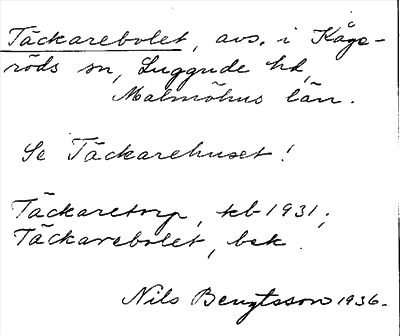 Täckarebolet, avs. i Kåge-
röds sn, Luggude hd,
Malmöhus län.
Se Täckarehuset!
Täckaretorp, tkb 1931;
Täckarebolet, bek.
Nils Bengtsson 1936.